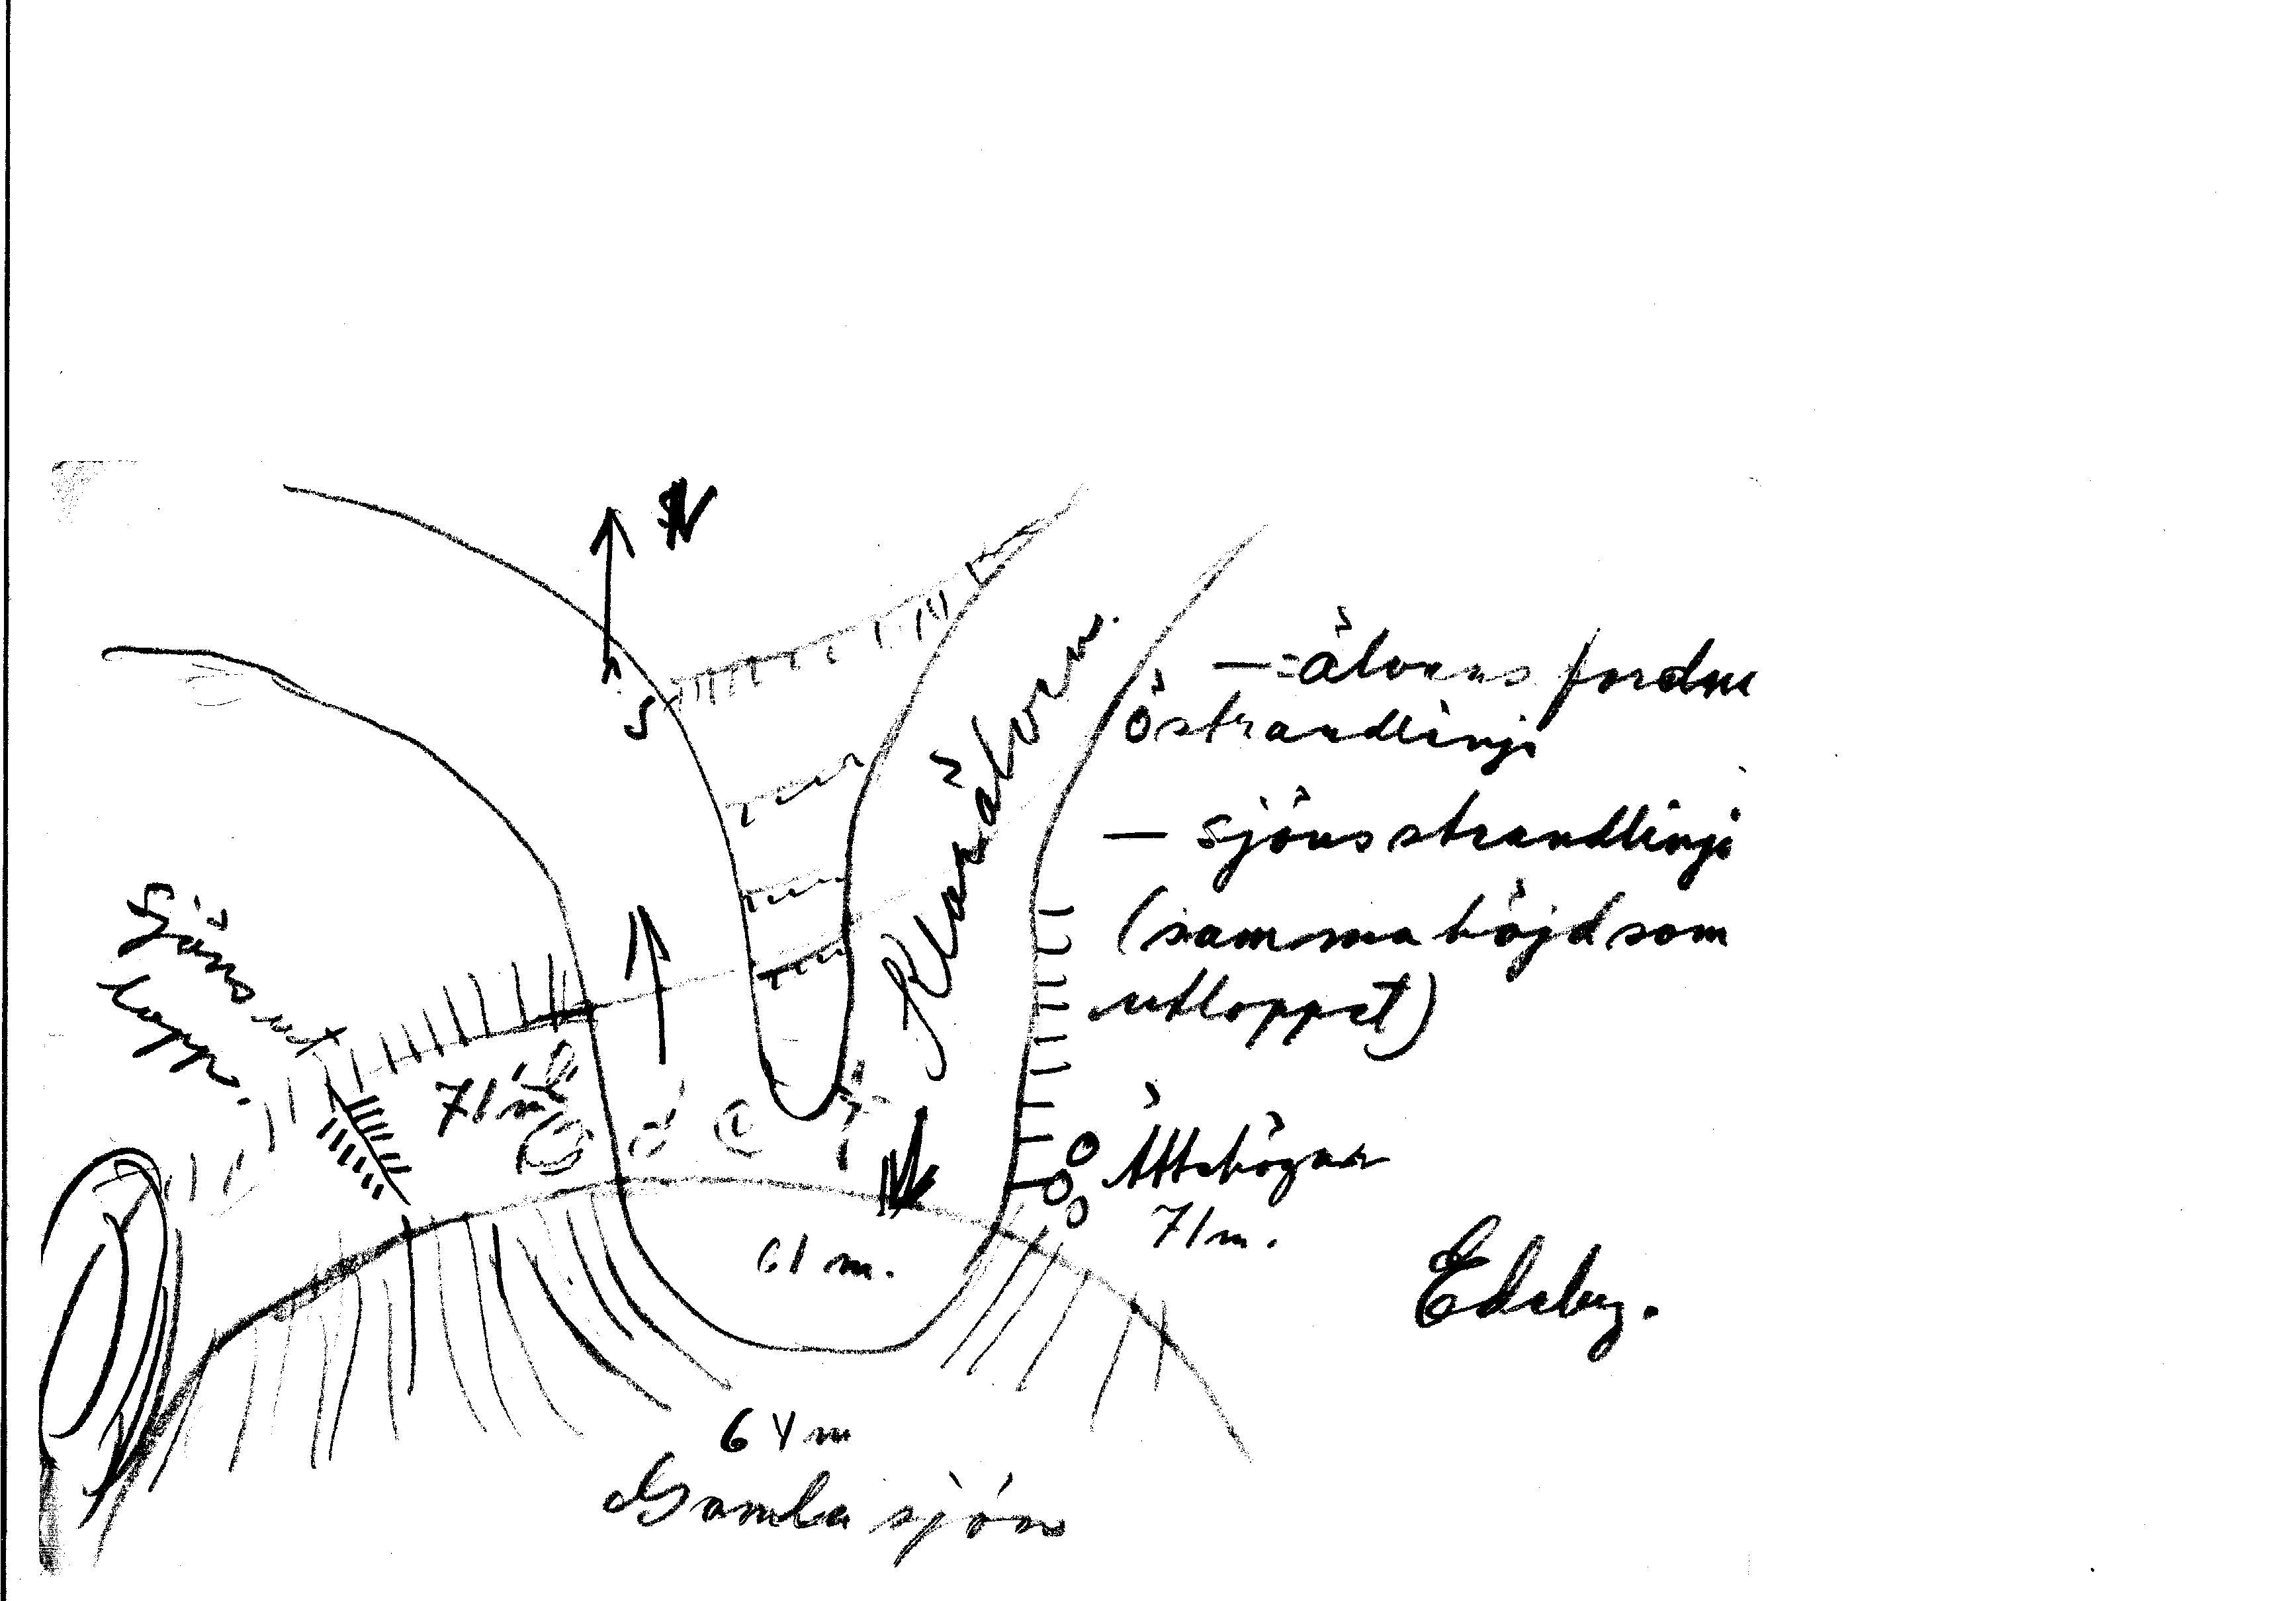 N
S
Klarälven.
— = älvens fordne
östrandlinje
— sjöns strandlinje
(samma höjd som
utloppet)
Sjöns ut
lopp.
71 m
Ättehögar
71 m.
61 m.
Edeby.
64 m
Gamla sjön